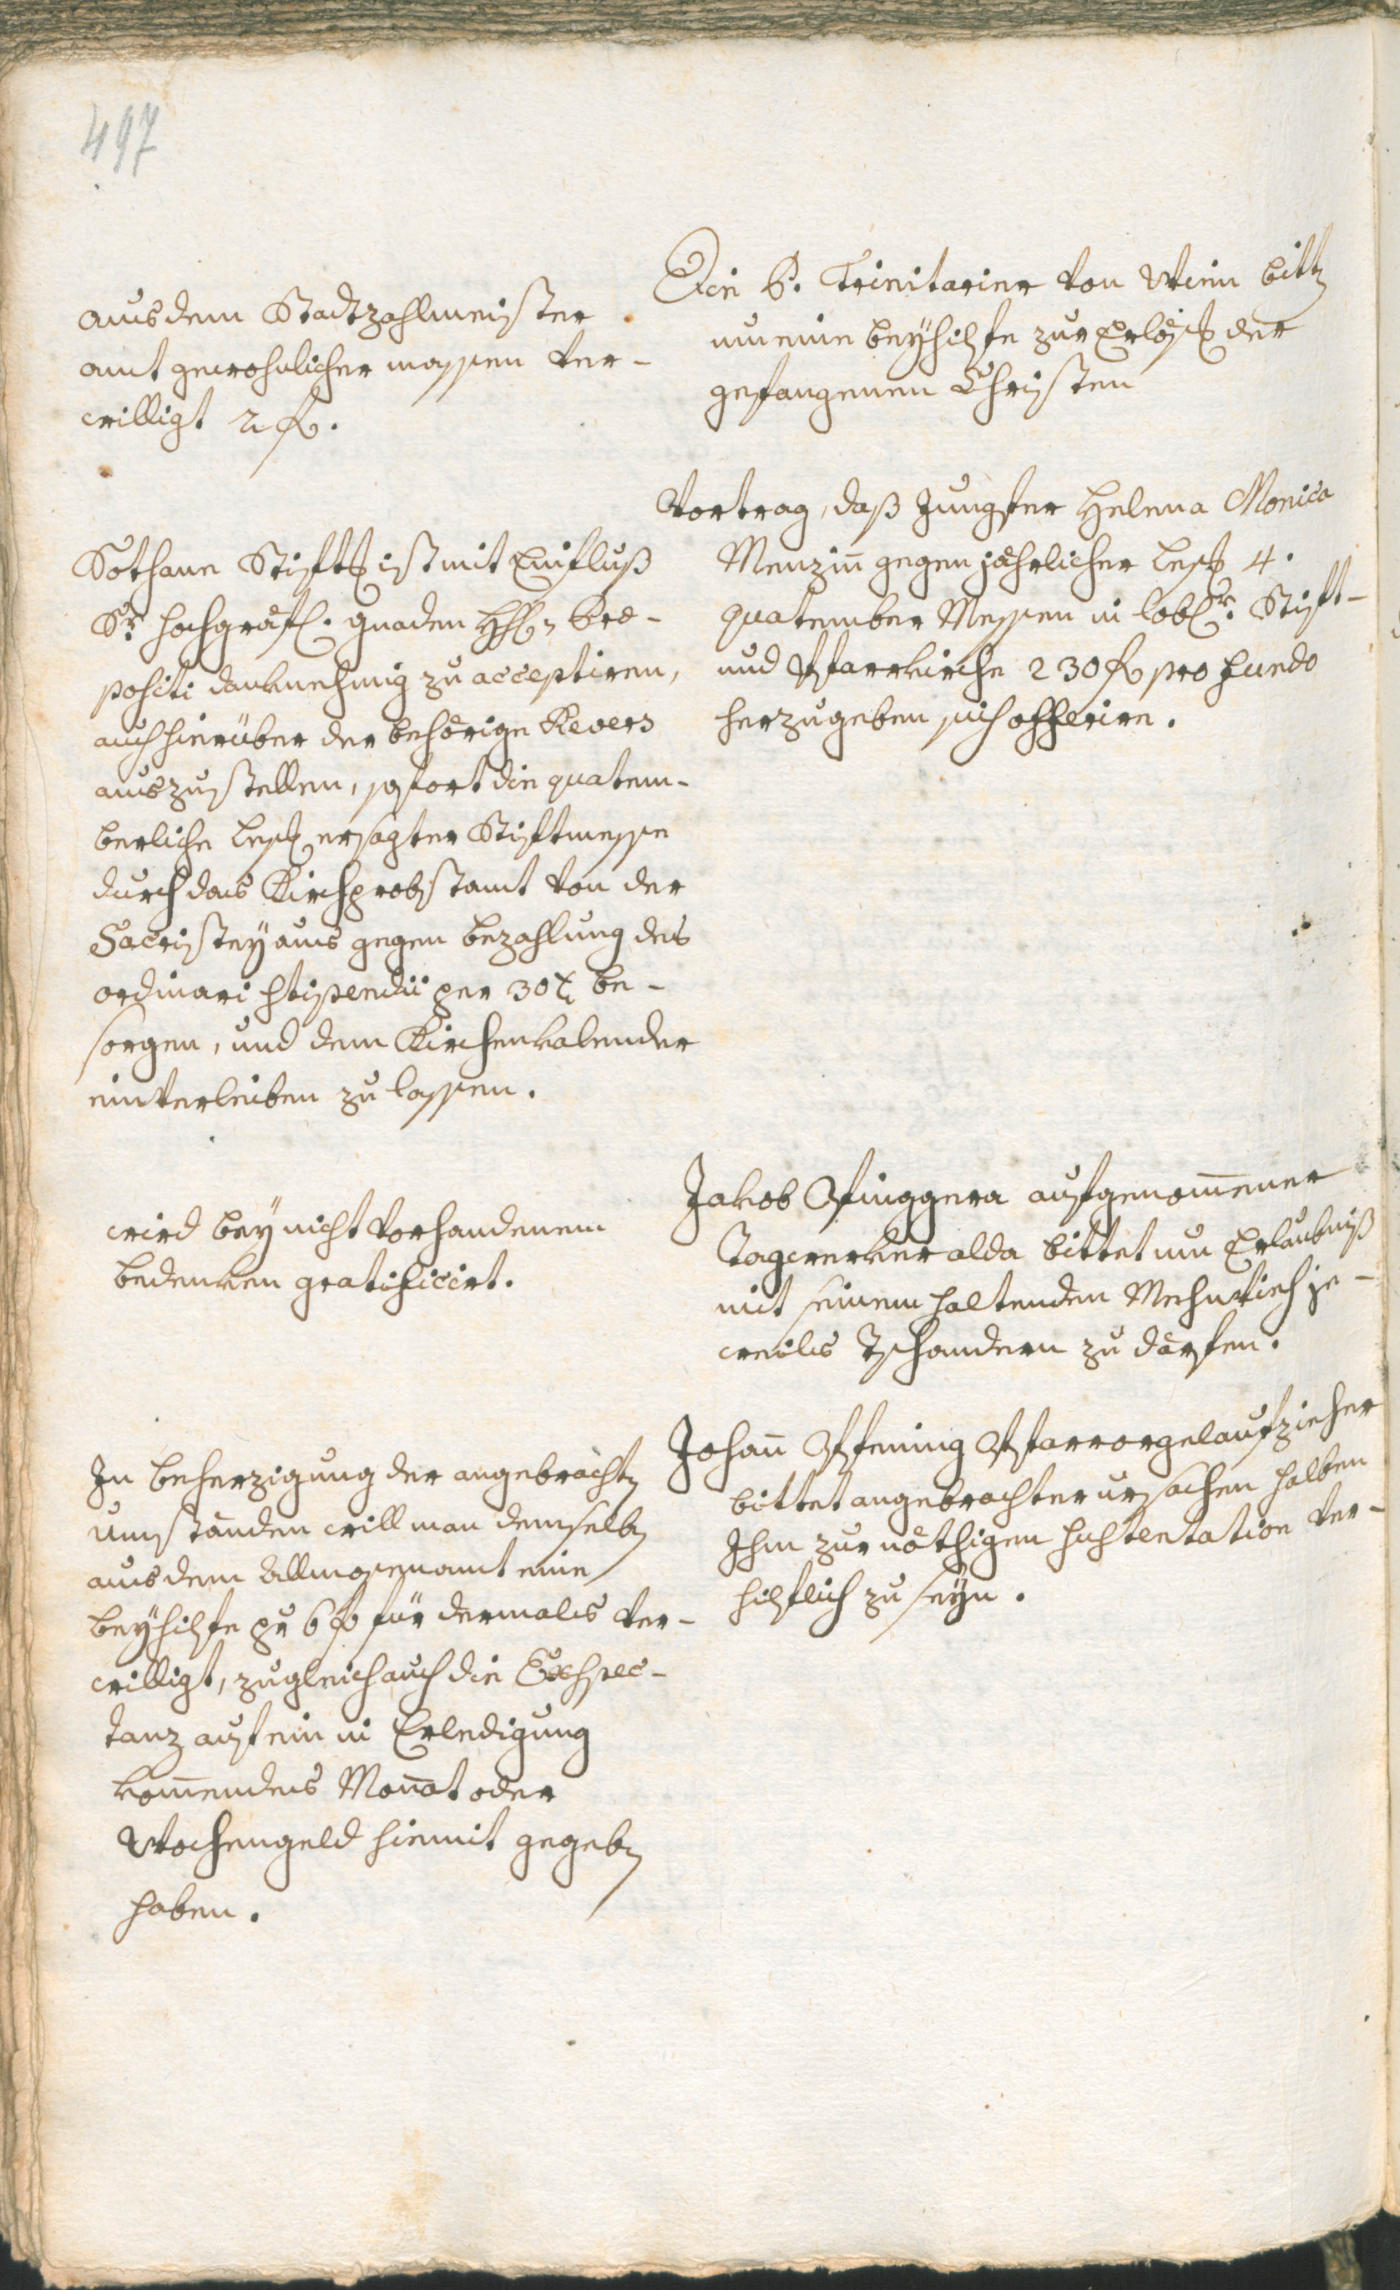 497
Die P. Trinitarier von Wien bitten
um eine Beyhilfe zur Erlösung der
gefangenen Christen
aus dem Stadtzahlmeister
amt gewohnlicher massen ver-
willigt 2 f.
Vortrag, daß Jungfer Helena Monica
Menzin gegen jährlicher Lesung 4.
quatember Messen in löblr. Stift-
und Pfarrkirche 230 f pro fundo
herzugeben sich offerire.
Sothane Stiftung ist mit Einfluß
Sr. hochgräfl. Gnaden Hhl. Prae-
positi danknehmig zu acceptiren,
auch hierüber der behörige Revers
auszustellen, sofort die quatem-
berliche Lesung ersagter Stiftmesse
durch das Kirchprobstamt von der
Sacristey aus gegen bezahlung des
ordinari stipendii per 30 x be-
sorgen, und dem Kirchenkalender
einverleiben zu lassen.
Jakob Pfinggera aufgenom̅ener
Tagwerker alda bittet um Erlaubniß
mit seinem haltenden Mehnvieh je-
weils Tschandern zu därfen.
wird bey nicht vorhandenem
bedenken gratificirt.
Johan̅ Pfening Pfarrorgelaufzieher
bittet angebrachter ursachen halben
Ihm zur nöthigen sustentation ver-
hilflich zu seyn.
In beherzigung der angebrachten
umständen will man demselben
aus dem Allmosenamt eine
beyhilfe pr 6 f für dermals ver-
willigt, zugleich auch die Exspec-
tanz auf ein in Erledigung
kom̅endes Monat oder
Wochengeld hiemit gegeben
haben.